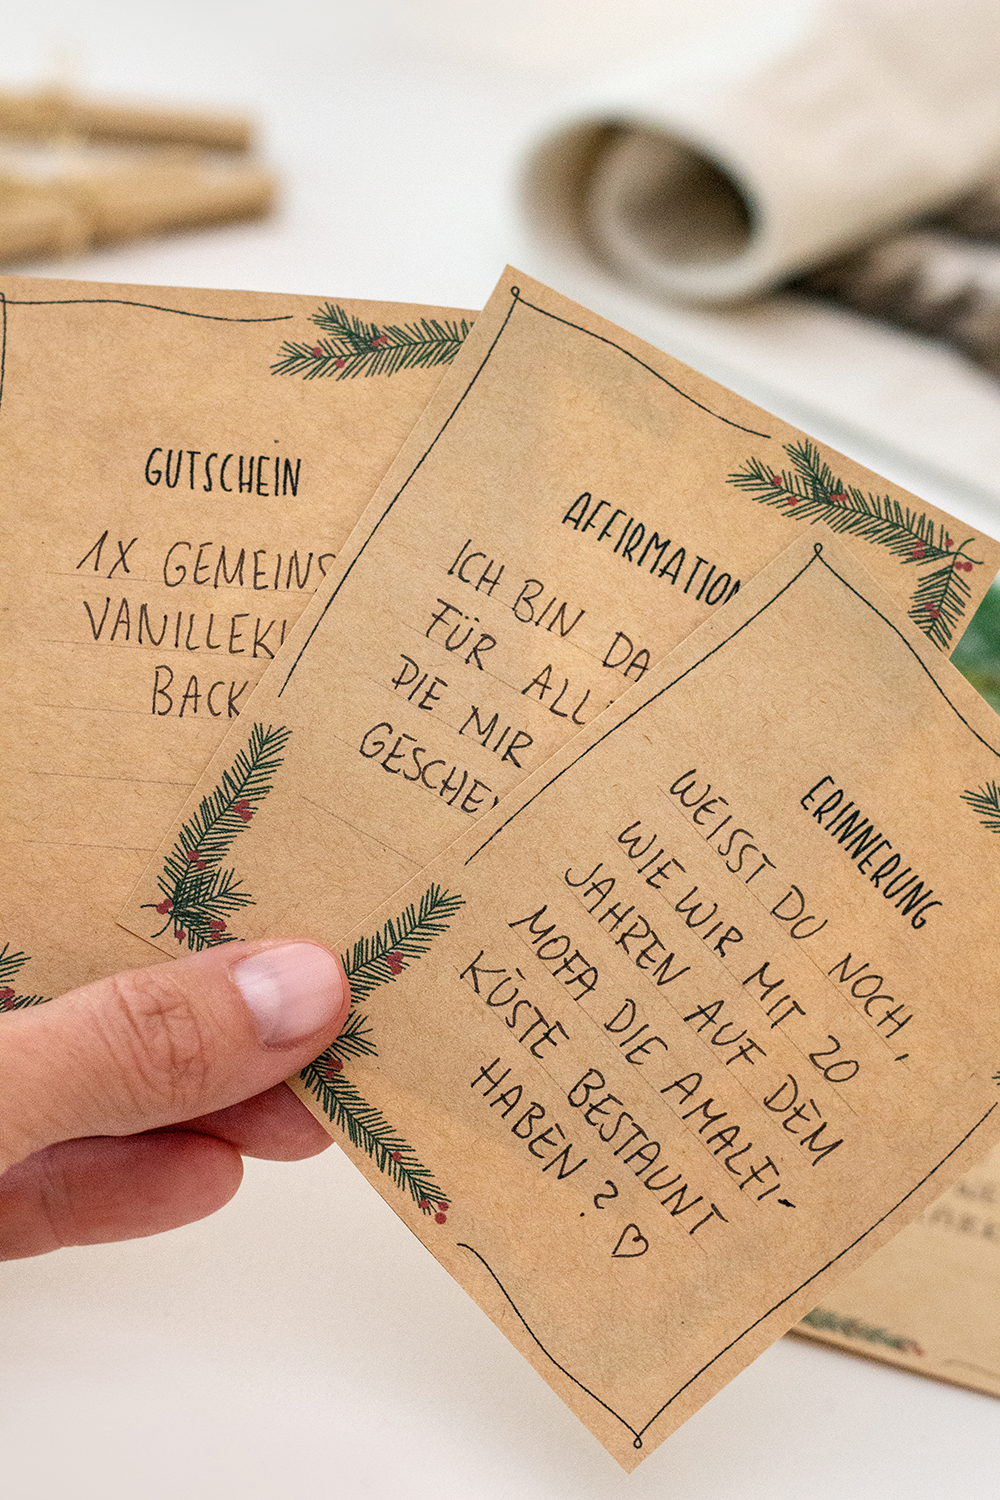 GUTSCHEIN
1X GEMEINS
VANILLEKI
BACK
AFFIRMATION
ICH BIN DA
FÜR ALL
DIE MIR
GESCHE
ERINNERUNG
WEISST DU NOCH,
WIE WIR MIT 20
JAHREN AUF DEM
MOFA DIE AMALFI-
KÜSTE BESTAUNT
HABEN? ♡